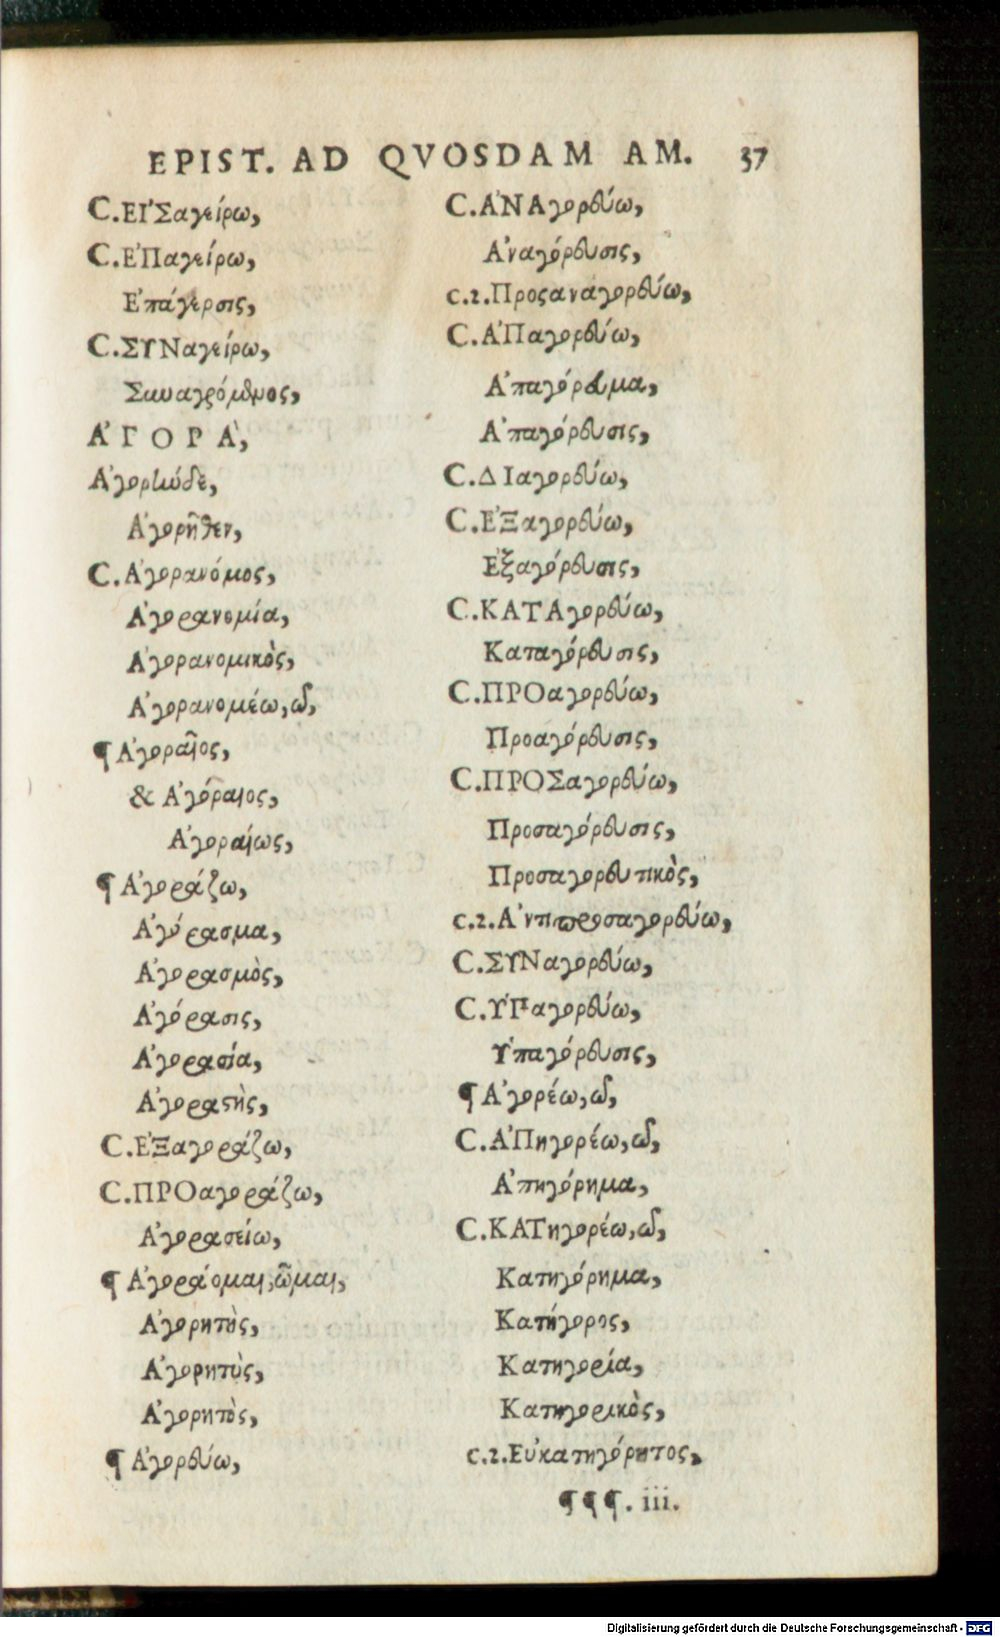 EPIST. AD QVOSDAM AM. 37
C.ΕἸΣαγείρω,
C.ἘΠαγείρω,
Ἐπάγερσις,
C.ΣΥΝαγείρω,
Συναγρόμενος,
ἈΓΟΡᾺ,
Ἀγορήνδε,
Ἀγορῆθεν,
C.Ἀγορανόμος,
Ἀγορανομία,
Ἀγορανομικὸς,
Ἀγορανομέω,ῶ,
¶ Ἀγοραῖος,
& Ἀγόραιος,
Ἀγοραίως,
¶ Ἀγοράζω,
Ἀγόρασμα,
Ἀγορασμὸς,
Ἀγόρασις,
Ἀγορασία,
Ἀγοραστὴς,
C.ἘΞαγοράζω,
C.ΠΡΟαγοράζω,
Ἀγορασείω,
¶ Ἀγοράομαι,ῶμαι,
Ἀγορητὴς,
Ἀγορητὺς,
Ἀγορητὸς,
¶ Ἀγορεύω,
C.ἈΝΑγορεύω,
Ἀναγόρευσις,
c.2.Προςαναγορεύω,
C.ἈΠαγορεύω,
Ἀπαγόρευμα,
Ἀπαγόρευσις,
C.ΔΙαγορεύω,
C.ἘΞαγορεύω,
Ἐξαγόρευσις,
C.ΚΑΤΑγορεύω,
Καταγόρευσις,
C.ΠΡΟαγορεύω,
Προαγόρευσις,
C.ΠΡΟΣαγορεύω,
Προσαγόρευσις,
Προσαγορευτικὸς,
c.2.Ἀντιπροσαγορεύω,
C.ΣΥΝαγορεύω,
C.ὙΠαγορεύω,
Ὑπαγόρευσις,
¶ Ἀγορέω,ῶ,
C.ἈΠηγορέω,ῶ,
Ἀπηγόρημα,
C.ΚΑΤηγορέω,ῶ,
Κατηγόρημα,
Κατήγορος,
Κατηγορία,
Κατηγορικὸς,
c.2.Εὐκατηγόρητος,
¶¶¶. iii.
Digitalisierung gefördert durch die Deutsche Forschungsgemeinschaft - DFG